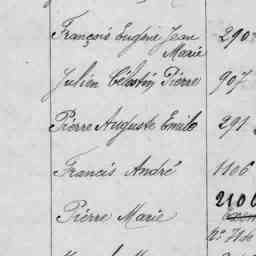 François Eugène Jean 290
Marie
Julien Célestin Pierre 907
Pierre Auguste Emile 291
Francis André 1106
2106
Pierre Marie
n° 7116